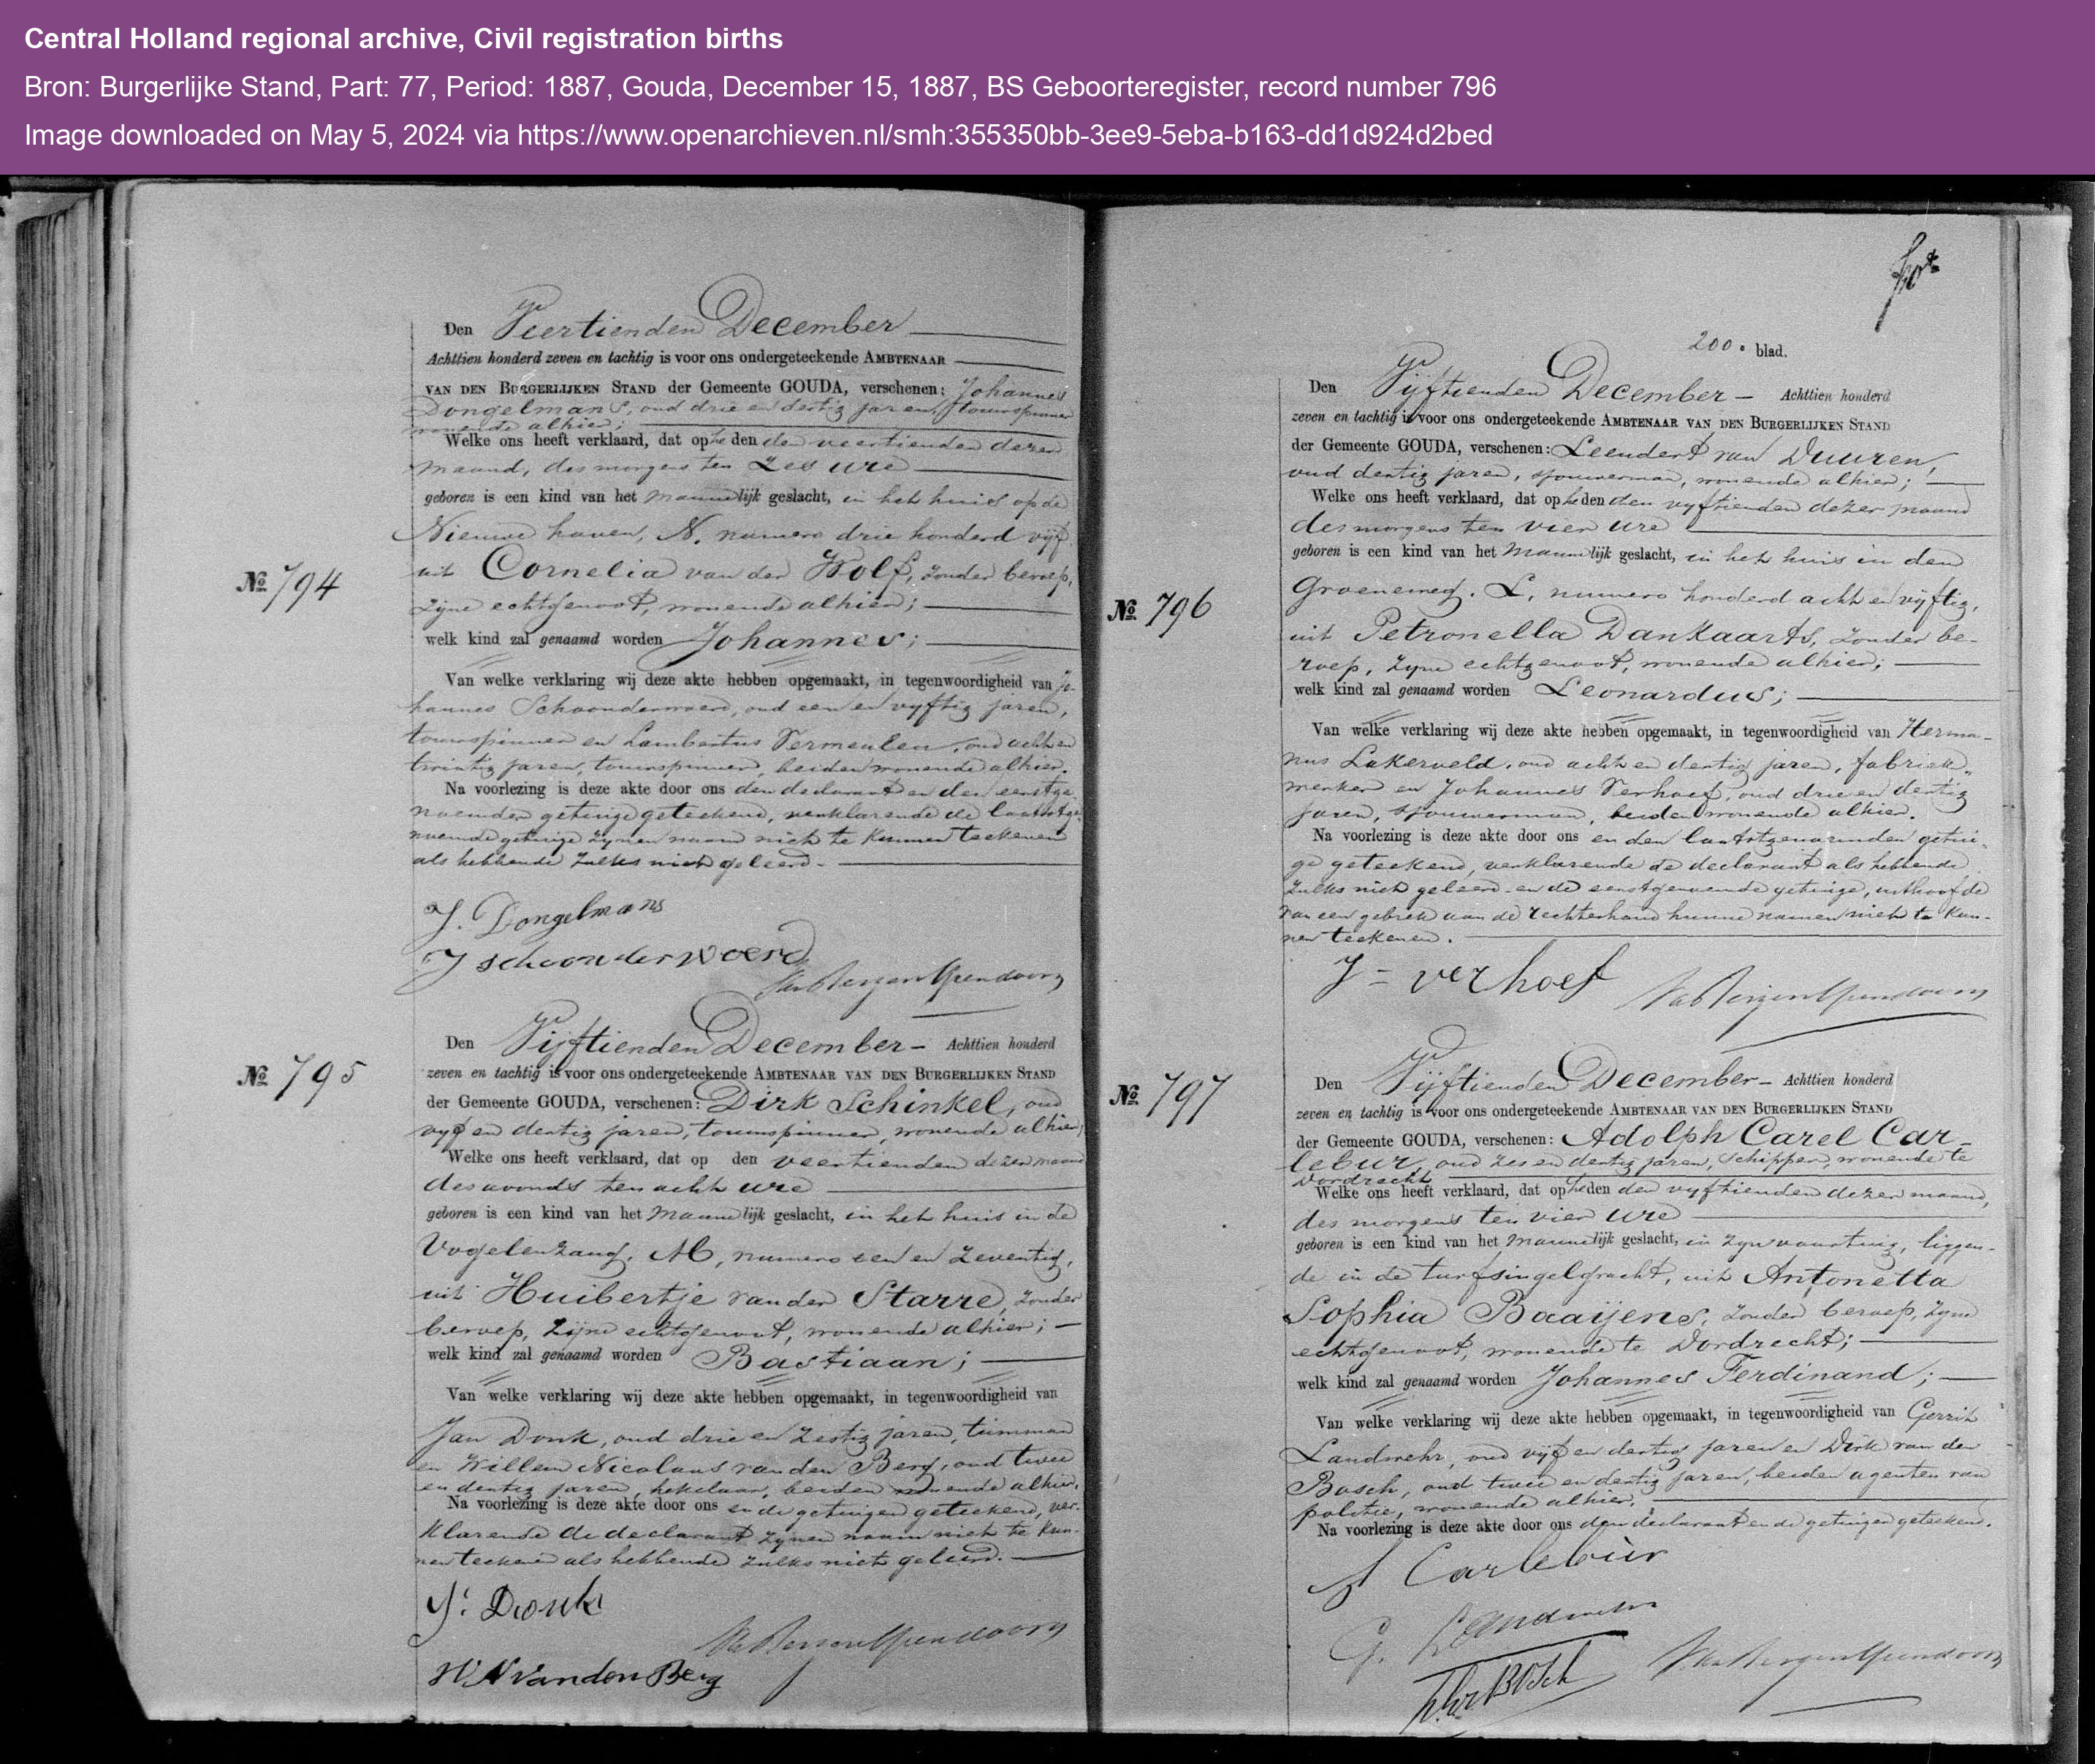 Central Holland regional archive, Civil registration births
Bron: Burgerlijke Stand, Part: 77, Period: 1887, Gouda, December 15, 1887, BS Geboorteregister, record number 796
Image downloaded on May 5, 2024 via https://www.openarchieven.nl/smh:355350bb-3ee9-5eba-b163-dd1d924d2bed
Den Veertienden December
Achttien honderd zeven en tachtig is voor ons ondergeteekende AMBTENAAR
VAN DEN BURGERLIJKEN STAND der Gemeente GOUDA, verschenen: Johannes
Dongelmans, oud drie en dertig jaren, touwspinner
wonende alhier;
Welke ons heeft verklaard, dat op heden den veertienden dezer
maand, des morgens ten zes ure
geboren is een kind van het mannelijk geslacht, in het huis op de
Nieuwe haven, N. numero drie honderd vijf
No 794
uit Cornelia van der Wolf, zonder beroep,
zijne echtgenoot, wonende alhier;
welk kind zal genaamd worden Johannes;
Van welke verklaring wij deze akte hebben opgemaakt, in tegenwoordigheid van Jo-
hannes Schoonderwoerd, oud een en vyftig jaren,
touwspinner en Lambertus Vermeulen, oud acht en
twintig jaren, touwspinner, beiden wonende alhier.
Na voorlezing is deze akte door ons den declarant en den eerstge
noemden getuige geteekend, verklarende de laatstge
noemde getuige zynen naam niet te kunnen teekenen
als hebbende zulks niet geleerd.
J. Dongelmans
J schoonderwoerd
Van Bergen IJzendoorn
No 795
Den Vijftienden December - Achttien honderd
zeven en tachtig is voor ons ondergeteekende AMBTENAAR VAN DEN BURGERLIJKEN STAND
der Gemeente GOUDA, verschenen: Dirk Schinkel, oud
vyf en dertig jaren, touwspinner, wonende alhier;
Welke ons heeft verklaard, dat op den veertienden dezer maand
des avonds ten acht ure
geboren is een kind van het mannelijk geslacht, in het huis in de
Vogelenzang, M, numero een en zeventig,
uit Huibertje van der Starre, zonder
beroep, zijne echtgenoot, wonende alhier;
welk kind zal genaamd worden Bastiaan;
Van welke verklaring wij deze akte hebben opgemaakt, in tegenwoordigheid van
Jan Donk, oud drie en zestig jaren, timman
en Willem Nicolaas van den Berg, oud twee
en dertig jaren, hekelaar, beiden wonende alhier.
Na voorlezing is deze akte door ons en de getuigen geteekend, ver-
klarende de declarant zynen naam niet te kun-
nen teekenen als hebbende zulks niet geleerd.
J. Donk
Van Bergen IJzendoorn
W N van den Berg
200e blad.
Den Vijftienden December - Achttien honderd
zeven en tachtig is voor ons ondergeteekende AMBTENAAR VAN DEN BURGERLIJKEN STAND
der Gemeente GOUDA, verschenen: Leendert van Duuren,
oud dertig jaren, sjouwerman, wonende alhier;
Welke ons heeft verklaard, dat op heden den vyftienden dezer maand
des morgens ten vier ure
geboren is een kind van het mannelijk geslacht, in het huis in den
Groeneweg. L, numero honderd acht en vyftig,
No 796
uit Petronella Dankaarts, zonder be-
roep, zyne echtgenoot, wonende alhier;
welk kind zal genaamd worden Leonardus;
Van welke verklaring wij deze akte hebben opgemaakt, in tegenwoordigheid van Herma-
nus Lakerveld, oud acht en dertig jaren, fabriek-
werker en Johannes Verhoef, oud drie en dertig
jaren, sjouwerman, beiden wonende alhier.
Na voorlezing is deze akte door ons en den laatstgenoemden getui-
ge geteekend, verklarende de declarant als hebbende
zulks niet geleerd en de eerstgenoemde getuige, uithoofde
van een gebrek aan de rechterhand hunne namen niet te kun-
nen teekenen.
J = verhoef
Van Bergen IJzendoorn
No 797
Den Vijftienden December - Achttien honderd
zeven en tachtig is voor ons ondergeteekende AMBTENAAR VAN DEN BURGERLIJKEN STAND
der Gemeente GOUDA, verschenen: Adolph Carel Car-
lebur, oud zes en dertig jaren, schipper, wonende te
Dordrecht
Welke ons heeft verklaard, dat op heden den vyftienden dezer maand,
des morgens ten vier ure
geboren is een kind van het mannelijk geslacht, in zyn vaartuig, liggen-
de in de turfsingelgracht, uit Antonetta
Sophia Baaijens, zonder beroep, zyne
echtgenoot, wonende te Dordrecht;
welk kind zal genaamd worden Johannes Ferdinand;
Van welke verklaring wij deze akte hebben opgemaakt, in tegenwoordigheid van Gerrit
Landwehr, oud vijf en dertig jaren en Dirk van den
Bosch, oud twee en dertig jaren, beiden agenten van
politie, wonende alhier.
Na voorlezing is deze akte door ons den declarant en de getuigen geteekend.
Carlebùr
G. Landwehr
Bosch
Van Bergen IJzendoorn